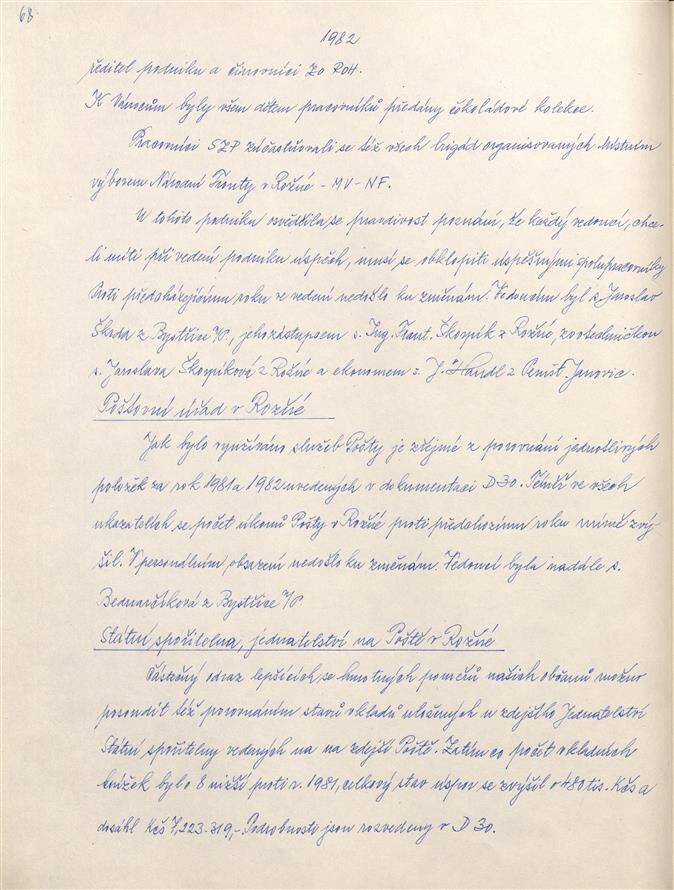 68
1982
ředitel podniku a činovníci ZO ROH.
K Vánocům byly všem dětem pracovníků předány čokoládové kolekce.
Pracovníci SZP zúčastňovali se též všech brigád organisovaných Místním
výborem Národní Fronty v Rožné - MV-NF.
V tohoto podniku osvědčila se pravdivost poznání, že každý vedoucí, chce-
li míti při vedení podniku úspěch, musí se obklopiti úspěšnými spolupracovníky
Proti předcházejícímu roku ve vedení nedošlo ku změnám. Vedoucím byl s. Jaroslav
Škoda z Bystřice n/P., jeho zástupcem s. Ing. Frant. Skorpík z Rožné, zootechničkou
s. Jaroslava Škorpíková z Rožné a ekonomem s. J. Handl z Pernšt. Janovic.
Poštovní úřad v Rožné
Jak bylo využíváno služeb Pošty je zřejmé z porovnání jednotlivých
položek za rok 1981 a 1982 uvedených v dokumentaci D 30. Téměř ve všech
ukazatelích se počet úkonů Pošty v Rožné proti předchozímu roku mírně zvý-
šil. V personálním obsazení nedošlo ku změnám. Vedoucí byla nadále s.
Bednaříková z Bystřice n/P.
Státní spořitelna, jednatelství na Poště v Rožné
Částečný odraz lepšících se hmotných poměrů našich občanů možno
posoudit též porovnáním stavů vkladů uložených u zdejšího Jednatelství
Státní spořitelny vedených na na zdejší Poště. Zatím co počet vkladních
knížek byl o 8 nižší proti r. 1981, celkový stav úspor se zvýšil o 480 tis. Kčs a
dosáhl Kčs 7,223.319,- Podrobnosti jsou rozvedeny v D 30.